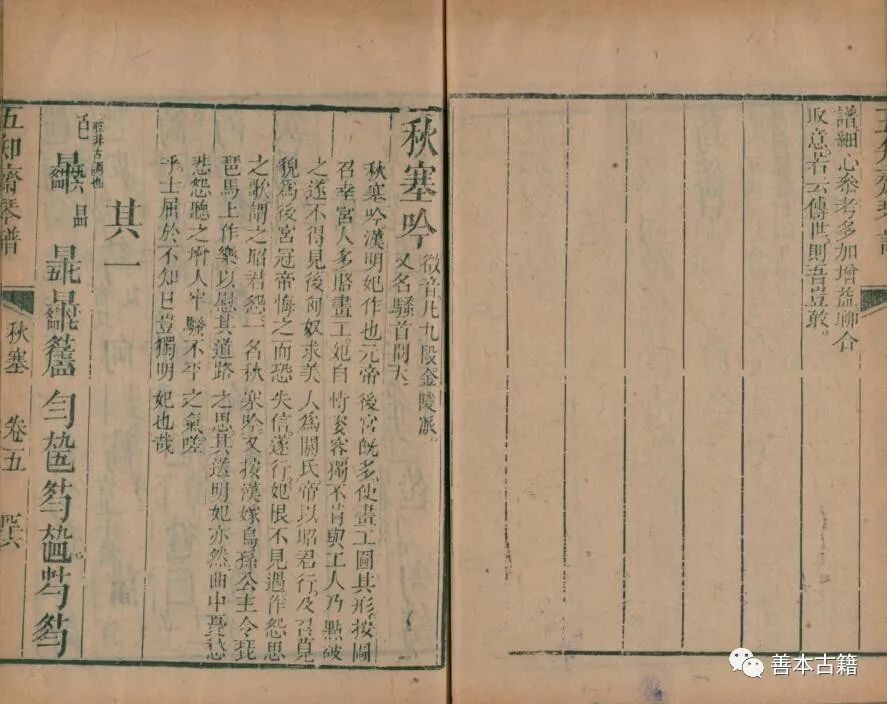 譜細心叅考多加增益聊合
取意若云傳世則吾豈敢
秋塞吟
徵音凡九段金陵派
又名騷首問天
秋塞吟漢明妃作也元帝後宮旣多使畫工圖其形按圖
召幸宮人多賂畫工妃自恃姿容獨不肯與工人乃點破
之遂不得見後匈奴求美人爲閼氏帝以昭君行及召見
貌爲後宮冠帝悔之而恐失信遂行妃恨不見遇作怨思
之歌謂之昭君怨一名秋塞吟又按漢嫁烏孫公主令琵
琶馬上作樂以慰其道路之思其送明妃亦然曲中憂愁
悲怨聽之增人牢騷不平之氣嗟
乎士屈於不知己豈獨明妃也哉
其一
非古調也
五知齋琴譜 秋塞 卷五
善本古籍